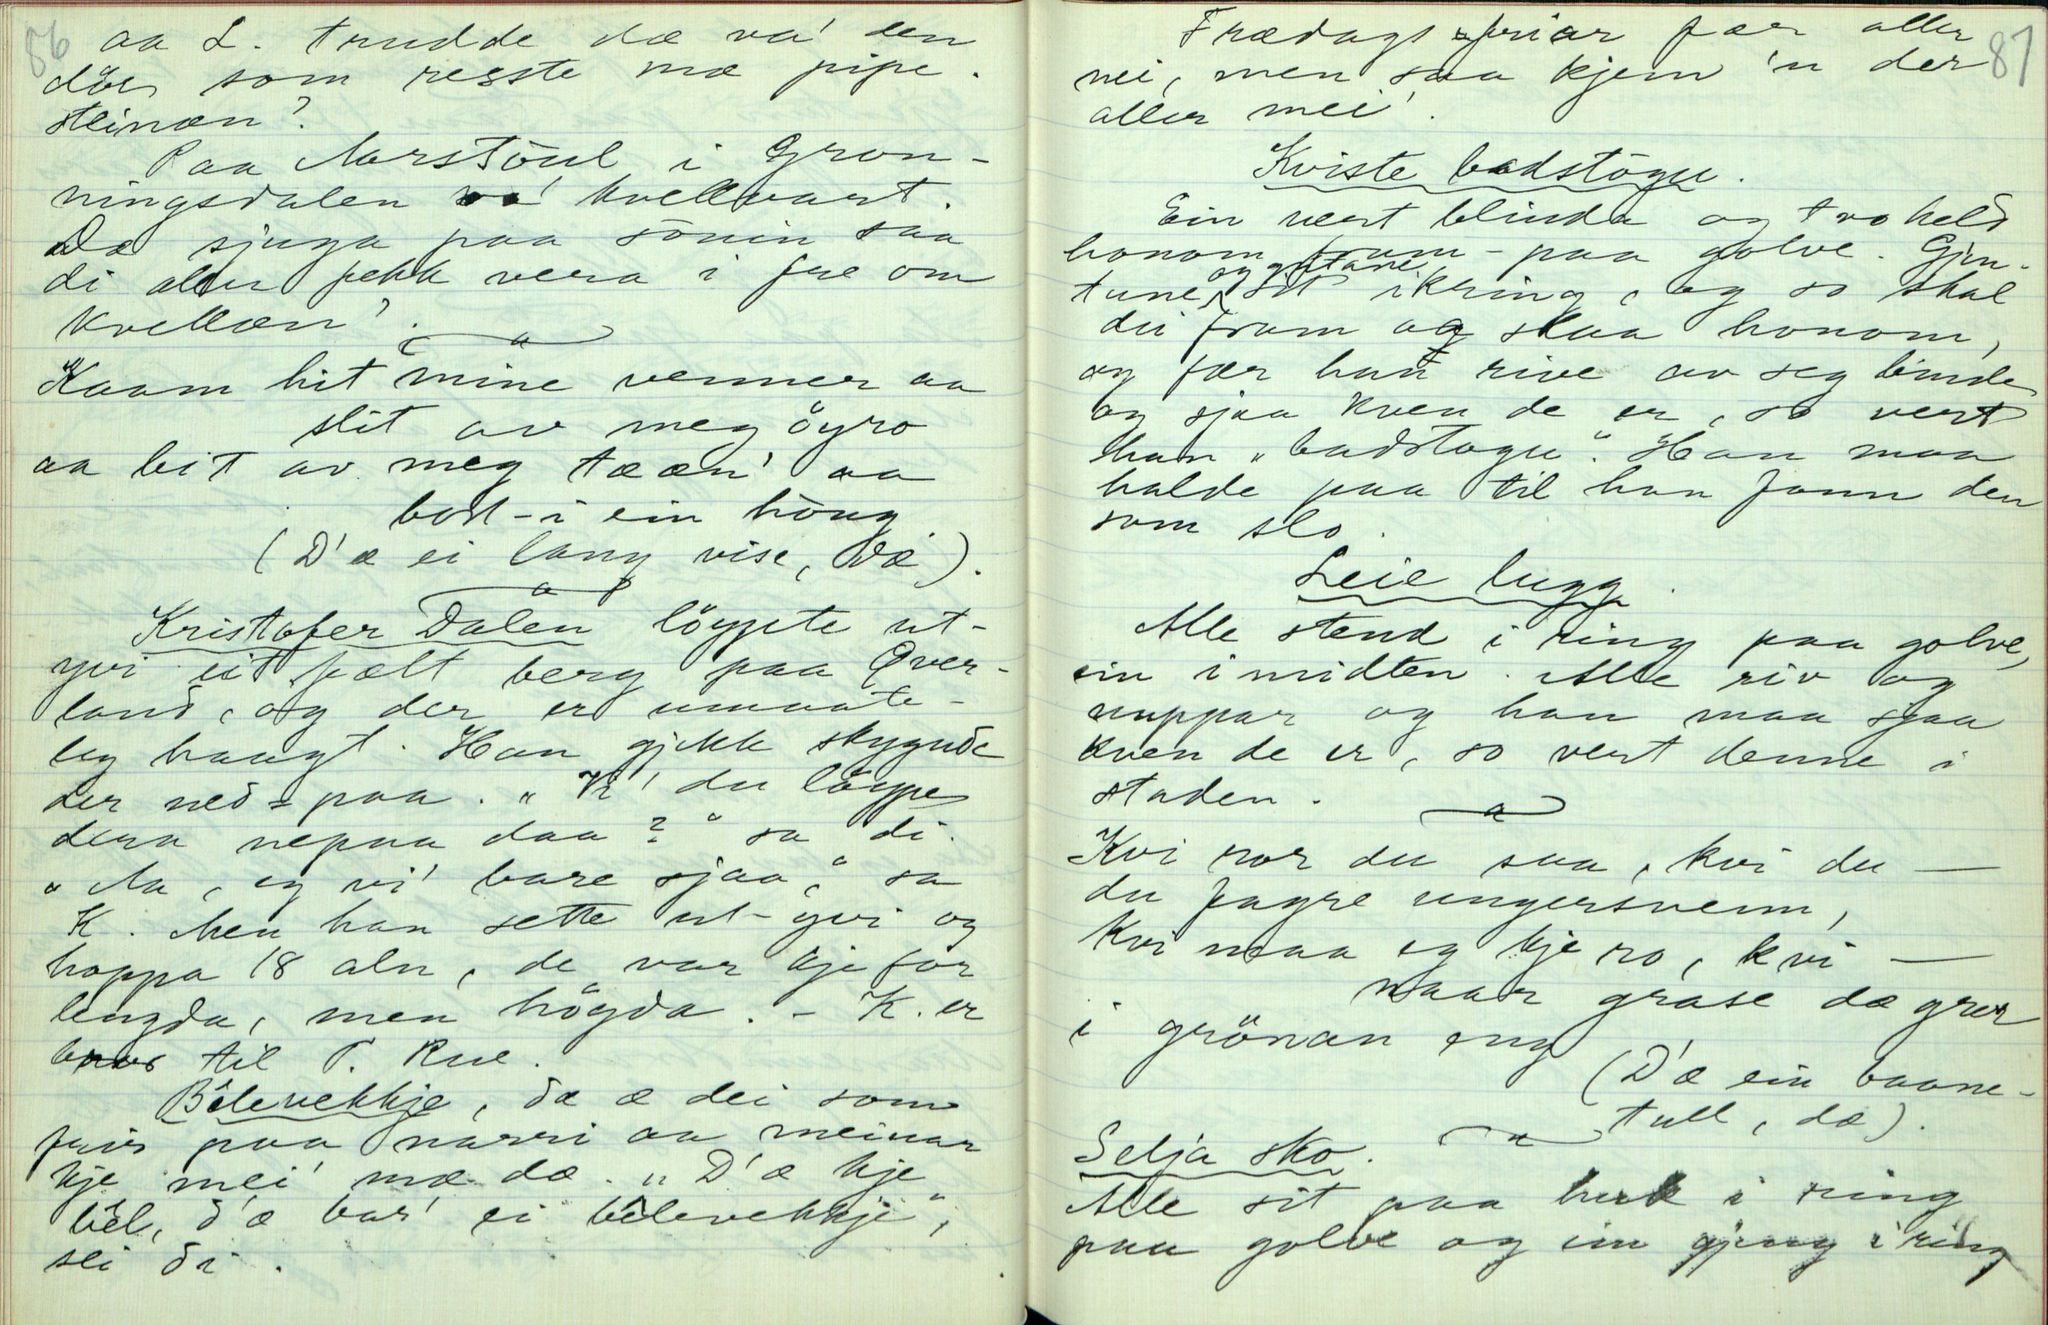 86
aa L. trudde dæ va' den
död som resste mæ pipe-
steinæn'.
Paa Norstöul i Gron-
ningsdalen va' kvellvart.
Dæ sjuga paa sönin saa
di aller fekk vera i fre om
kvellæn'.
Kaam hit mine venner aa
slit av meg öyro
aa bit av meg tææn' aa
bort i ein haug
(D'æ ei lang vise, dæ).
Kristofer Dalen löypte ut-
yvi eit fælt berg paa Över-
land, og der er umaate-
leg haagt. Han gjekk skygnde
der ned-paa. „Vi' du löype
dera nepaa daa?“ sa di.
„Na, eg vi' bare sjaa,“ sa
K. Men han sette ut-yvi og
hoppa 18 aln, de var kje for
lengda, men högda. – K. er
bror til T. Rue.
Bêlevekkje, dæ æ dei som
fuir paa narri aa meinar
kje mei' mæ dæ. „D'æ kje
bêl, d'æ bar' ei bêlevekkje“,
sei di.
87
Frædags-friar fær aller
nei, men saa kjem 'n der
aller mei'.
Kviste badstōgu.
Ein vert blinda og tvo held
honom fram-paa golve. Gjen-
tune og gutane sit ikring, og so skal
dei fram og slaa honom,
og fær han rive av seg binde
og sjaa kven de er, so vert
han „badstogu“. Han maa
halde paa til han fann den
som slo.
Leie lugg.
Alle stend i ring paa golve,
ein i midten. Alle riv og
nuppar og han maa sjaa
kven de er, so vert denne i
staden.
Kvi ror du saa, kvi du —
du fagre ungersveinn,
Kvi maa eg kje ro, kvi —
naar grase dæ gror
i grönan eng
(D'æ ein baane-
tull, dæ).
Selja sko.
Alle sit paa huk i ring
paa golve og ein gjeng i ring